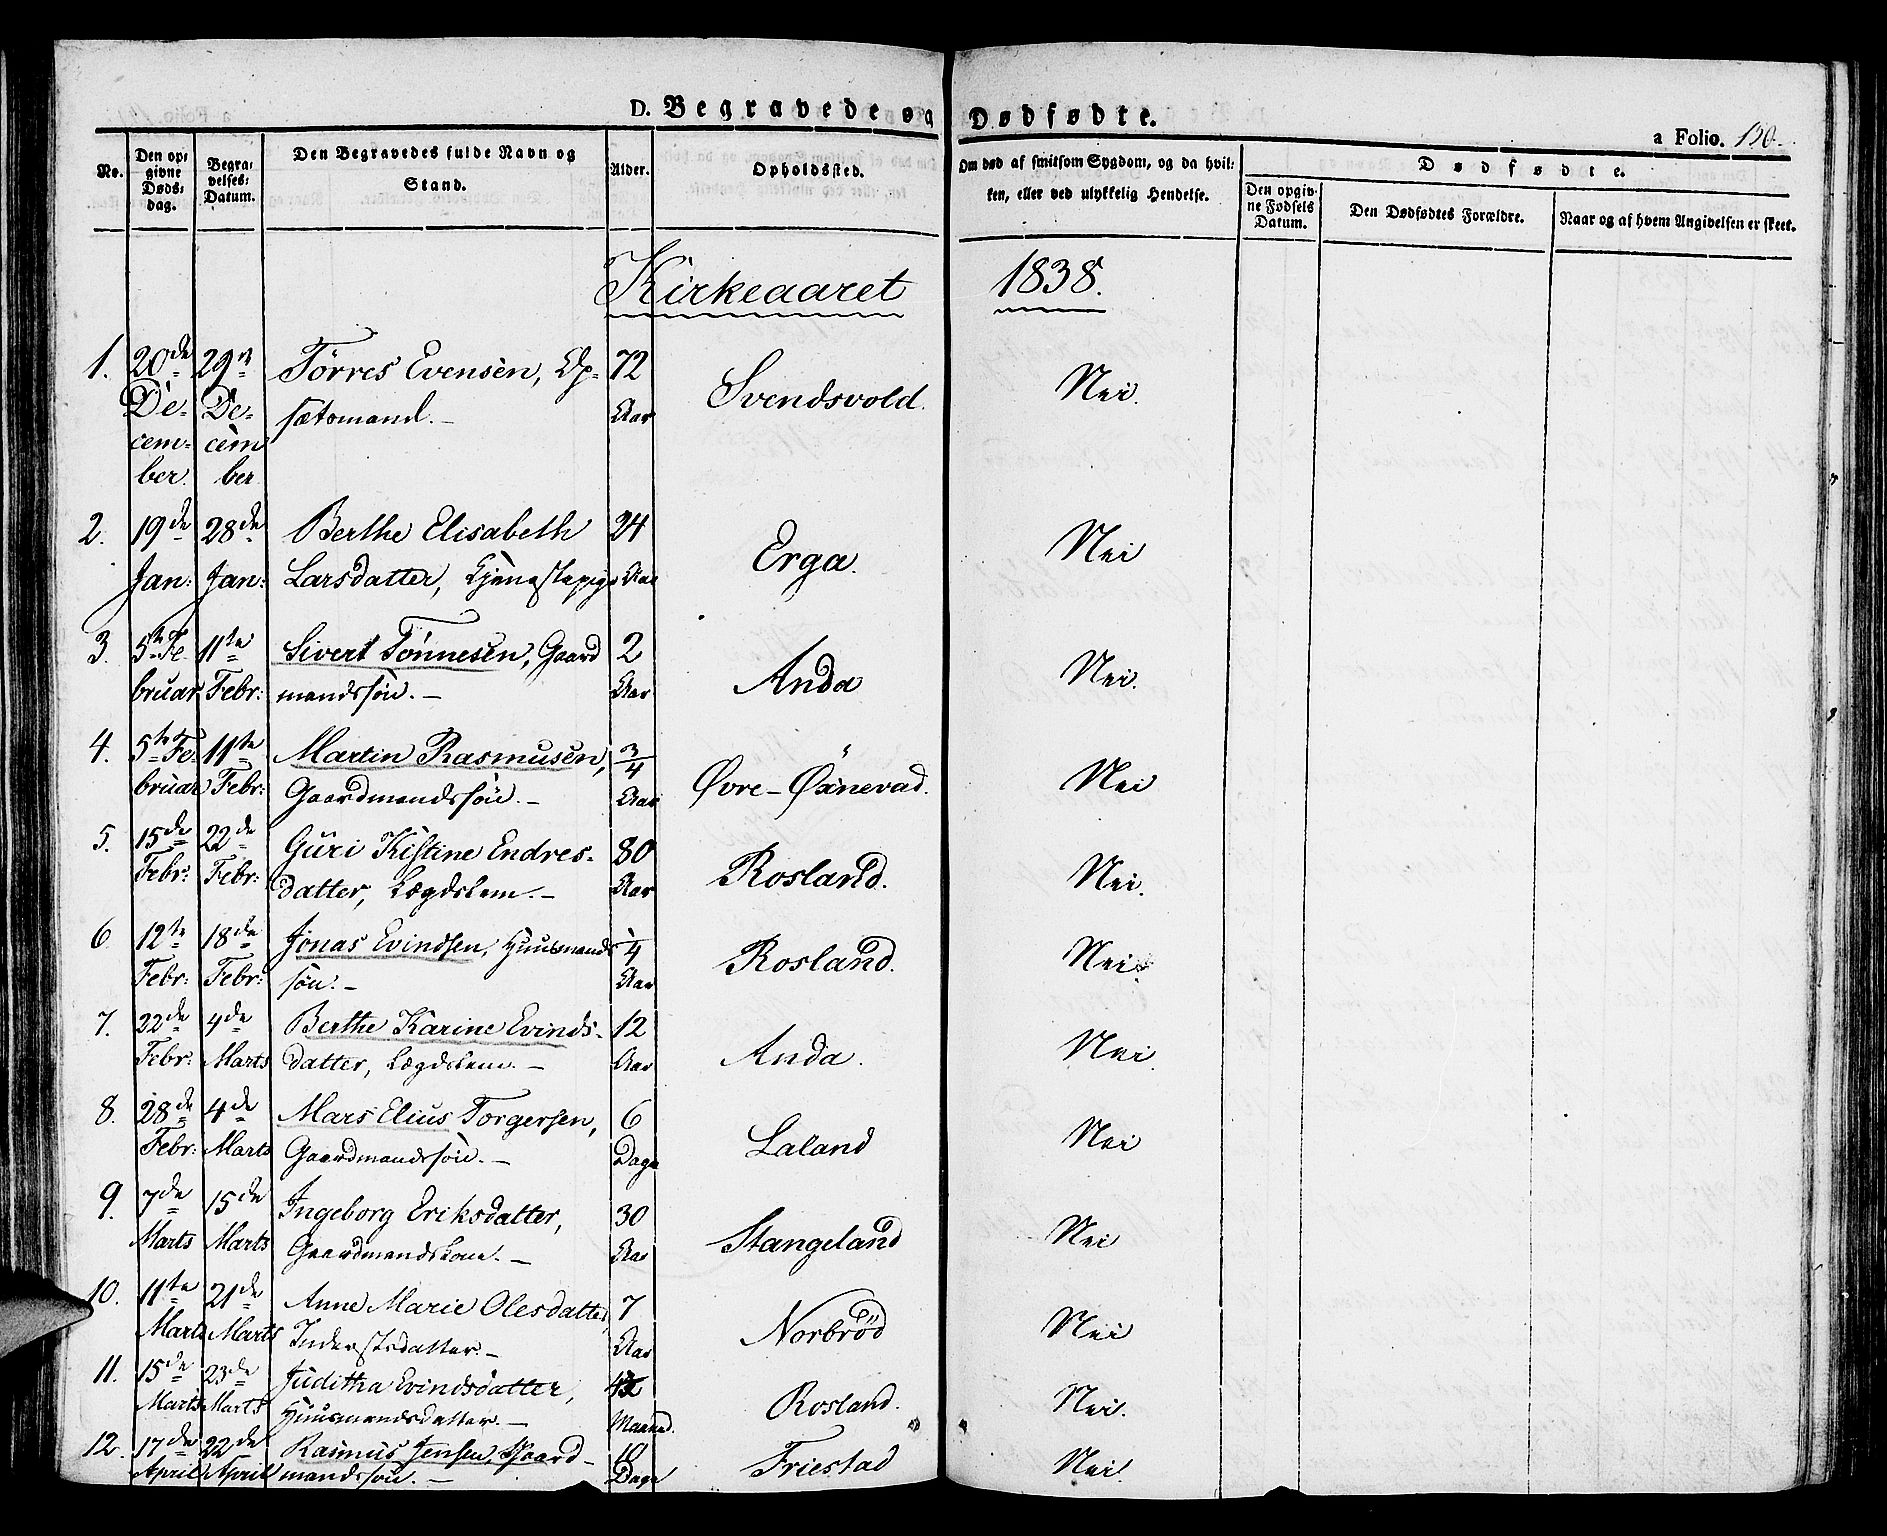 D. Begravede og Dødfødte.
a Folio. 150.
No.
Den op=
givne
Døds=
dag.
Begra=
velses=
Datum.
Den Begravedes fulde Navn og
Stand.
Alder.
Opholdssted.
Om død af smitsom Sygdom, og da hvil=
ken, eller ved ulykkelig Hendelse.
Dødfødte.
Den opgiv=
ne Fødsels
Datum.
Den Dødfødtes Forældre.
Naar og af hvem Angivelsen er skeet.
Kirkeaaret 1838.
1. 20de 29n Tørres Evensen, Op= 72
De= De= sætsmand. — Aar Svendsvold. Nei.
cem= cem
ber. ber
2. 19de 28de Berthe Elisabeth 24
Jan: Jan: Larsdatter, Tjenestepige Aar Erga. Nei
3. 5te Fe 11te Sivert Tønnesen, Gaard 2
bruar Febr: mandssøn. — Aar Anda Nei.
4. 5te Fe= 11te Martin Rasmusen, 3/4
bruar Febr: Gaardmandssøn. — Aar Øvre-Øxnevad. Nei
5. 15de 22de Guri Kistine Endres= 80
Febr: Febr: datter, Lægdslem. — Aar Rosland. Nei.
6. 12te 18de Jonas Evindsen, Huusmands 1/4
Febr: Febr: søn. — Aar Rosland. Nei.
7. 22de 4de Berthe Karine Evinds= 12
Febr: Marts datter, Lægdslem. — Aar Anda. Nei.
8. 28de 4de Mars Elius Torgersen, 6
Febr: Marts Gaardmandssøn. — Dage Laland Nei
9. 7de 15de Ingeborg Eriksdatter, 30
Marts Marts Gaardmandskone. — Aar Stangeland Nei
10. 11te 21de Anne Marie Olesdatter, 7
Marts Marts Inderstsdatter. — Aar Norbrød Nei
11. 15de 23de Juditha Evindsdatter,
Marts Marts Huusmandsdatter. — Maaned. Rosland. Nei.
12. 17de 22de Rasmus Jensen, Gaard= 10
April April mandssøn. — Dage Friestad Nei.